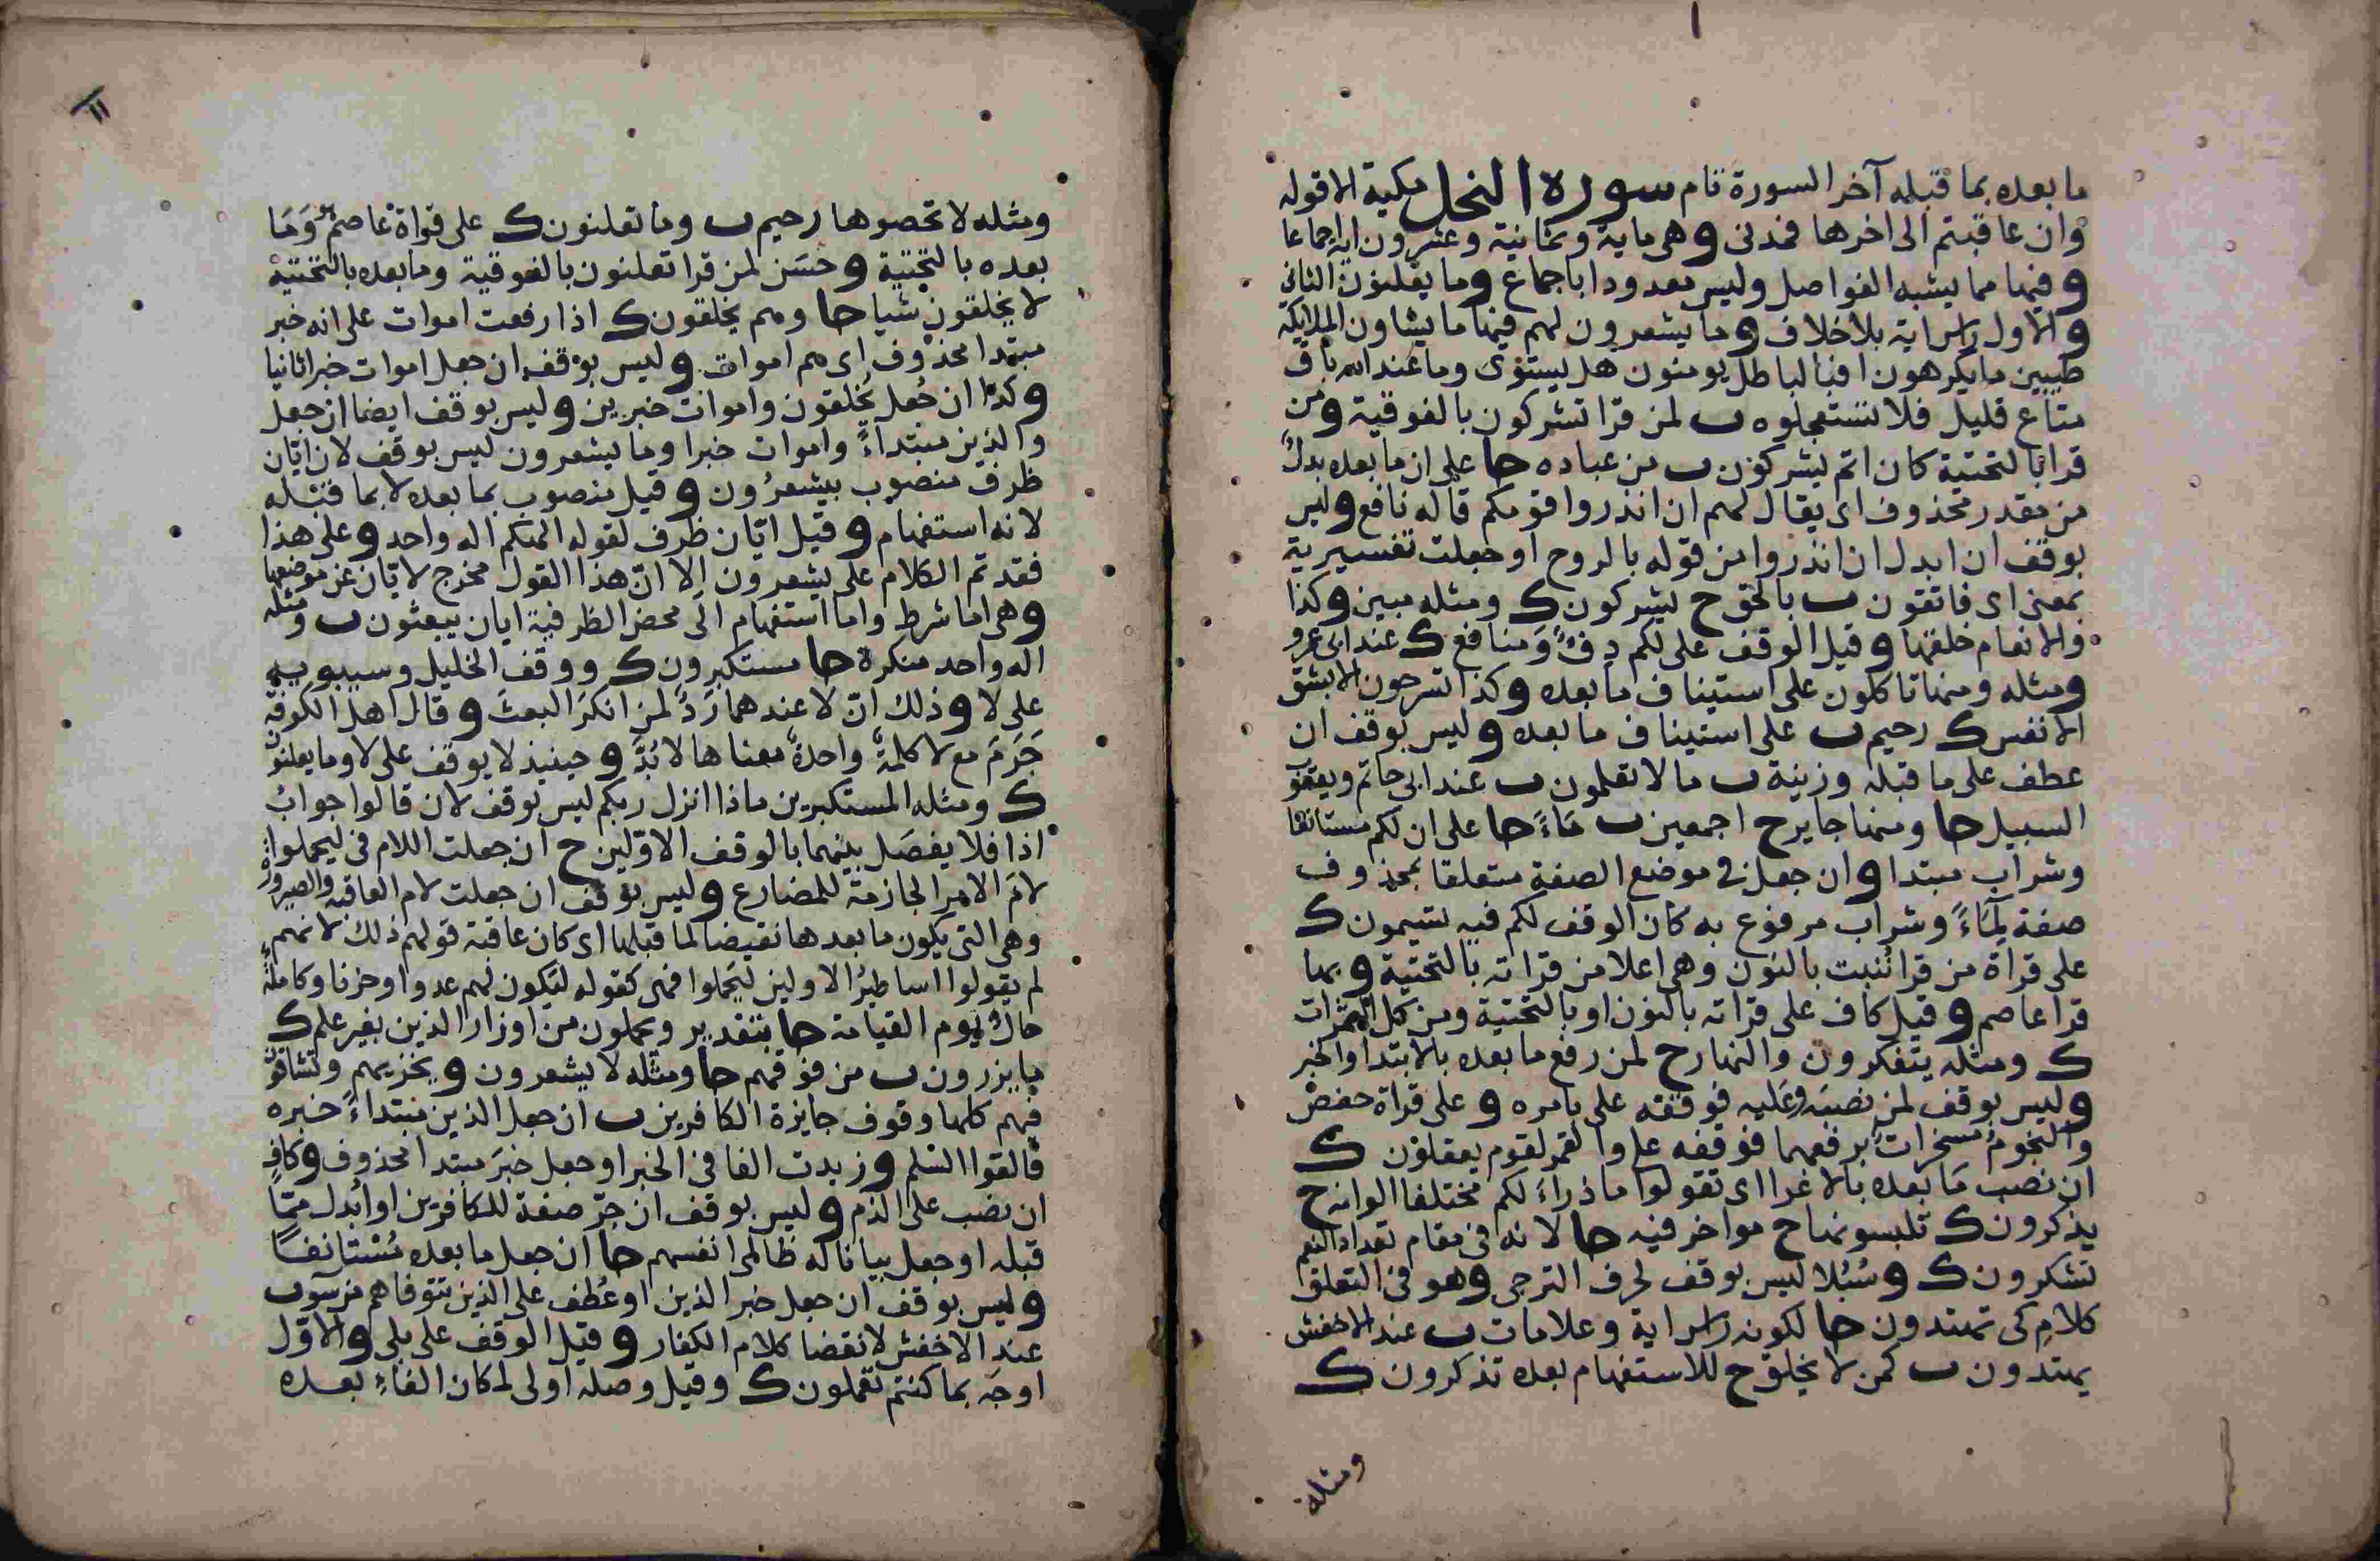 ما بعده بما قبله آخر السورة تام سورة النحل مكية الا قوله
وان عاقبتم الى اخرها فمدنى وهى ماية وثمانية وعشرون اية اجماعا
وفيها مما يشبه الفواصل وليس معدودا باجماع وما يعلنون الثانى
والاول راس اية بلا خلاف وما يشعرون لهم فيها ما يشاون الملايكة
طيبين ما يكرهون افبالباطل يومنون هل يستوى وما عند الله باق
متاع قليل فلا تستعجلوه ب لمن قرا تشركون بالفوقية ومن
قرا بالتحتية كان اتم يشركون ب من عباده حا على ان ما بعده بدل
من مقدر محذوف اى يقال لهم ان انذروا قومكم قاله نافع وليس
بوقف ان ابدل ان انذروا من قوله بالروح او جعلت تفسيرية
بمعنى اى فاتقون ب بالحق ح يشركون ك ومثله مبين وكذا
والانعام خلقها وقيل الوقف على لكم دفء ومنافع ك عند ابى عمرو
ومثله ومنها تاكلون على استيناف ما بعده وكذا تسرحون الا بشق
الانفس ك رحيم ب على استيناف ما بعده وليس بوقف ان
عطف على ما قبله وزينة ب ما لا تعلمون ب عند ابى حاتم ويعقوب
السبيل حا ومنها جاير ح اجمعين ب مَاءً حا على ان لكم مستانفا
وشراب مبتدا وان جعل فى موضع الصفة متعلقا بمحذوف
صفة لِمَاءً وشراب مرفوع به كان الوقف لكم فيه تسيمون ك
على قراة من قرا ننبت بالنون وهى اعلا من قراته بالتحتية وبها
قرا عاصم وقيل كاف على قراته بالنون او بالتحتية ومن كل الثمرات
ك ومثله يتفكرون والنهار ح لمن رفع ما بعده بالابتدا والخبر
وليس بوقف لمن نصبه وعليه فوقفه على بامره وعلى قراة حفص
والنجومُ مسخراتٌ برفعهما فوقفه على والقمر لقوم يعقلون ك
ان نصب ما بعده بالاغرا اى تقولوا ما ذراء لكم مختلفا الوانه ح
يذكرون ك تلبسونها ح مواخر فيه حا لانه فى مقام تعداد النعم
تشكرون ك وسُبُلا ليس بوقف لحرف الترجى وهو فى التعلق
كلامِ كى تهتدون حا لكونه راس اية وعلامات ب عند الاخفش
يهتدون ب كمن لا يخلق ح للاستفهام بعده تذكرون ك
ومثله
ومثله لا تحصوها رحيم ب وما تعلنون ك على قراة عاصم وَمَا
بعده بالتحتية وحَسَن لمن قرا تعلنون بالفوقية وما بعده بالتحتية
لا يخلقون شيا حا وهم يخلقون ك اذا رفعت اموات على انه خبر
مبتدا محذوف اى هم اموات وليس بوقف ان جعل اموات خبرا ثانيا
وكذا ان جُعل يُخلقون واموات خبرين وليس بوقف ايضا ان جعل
والذين مبتداءً واموات خبرا وما يشعرون ليس بوقف لان ايّان
ظرف منصوب بيشعرُون وقيل منصوب بما بعده لا بما قبله
لانه استفهام وقيل ايّان ظرف لقوله الهكم اله واحد وعلى هذا
فقد تم الكلام على يشعرون الا انّ هذا القول مخرج لايّان عن موضعها
وهى اما شرط واما استفهام الى محض الظرفية ايان يبعثون ب ومثله
اله واحد منكرة حا مستكبرون ك ووقف الخليل وسيبويه
على لا وذلك انّ لا عندهما رَدٌّ لمن انكرَ البعثَ وقال اهل الكوفة
جَرَمَ مع لا كلمةٌ واحدةٌ معناها لا بُدَّ وحينيذ لا يوقف على لا وما يعلنون
ك ومثله المستكبرين ماذا انزل ربكم ليس بوقف لان قالوا جوابُ
اذا فلا يفصَل بينهما بالوقف الاوّلين ح ان جعلت اللام فى ليحملوا
لامَ الامر الجازمة للمضارع وليس بوقف ان جعلت لام العاقبة والصيرورة
وهى التى يكون ما بعدها نقيضا لما قبلها اى كان عاقبة قولهم ذلك لانهم
لم يقولوا اساطيرُ الاولين ليَحملوا فهى كقوله ليَكون لهم عدوا وحزنا وكاملةً
حالٌ يوم القيامة حا بتقدير ويحملون من اوزار الذين بغير علم ك
ما يزرون ب من فوقهم حا ومثله لا يشعرون ويخزيهم وتشاقون
فيهم كلها وقوف جايزة الكافرين ب ان جعل الذين مبتداءً خبره
فالقوا السَّلم وزيدت الفا فى الخبر او جعل خبرَ مبتدا محذوف وكافٍ
ان نصب على الذم وليس بوقف ان جرّ صفة للكافرين او ابدل ممّا
قبله او جعل بيانا له ظالمى انفسهم حا ان جعل ما بعده مُسْتانفًا
وليس بوقف ان جعل خبر الذين او عُطف على الذين تتوفاهم من سوء ب
عند الاخفش لانقضا كلام الكفار وقيل الوقف على بلى والاوّل
اوجَه بما كنتم تعملون ك وقيل وصله اولى لمكان الفاءِ بعده